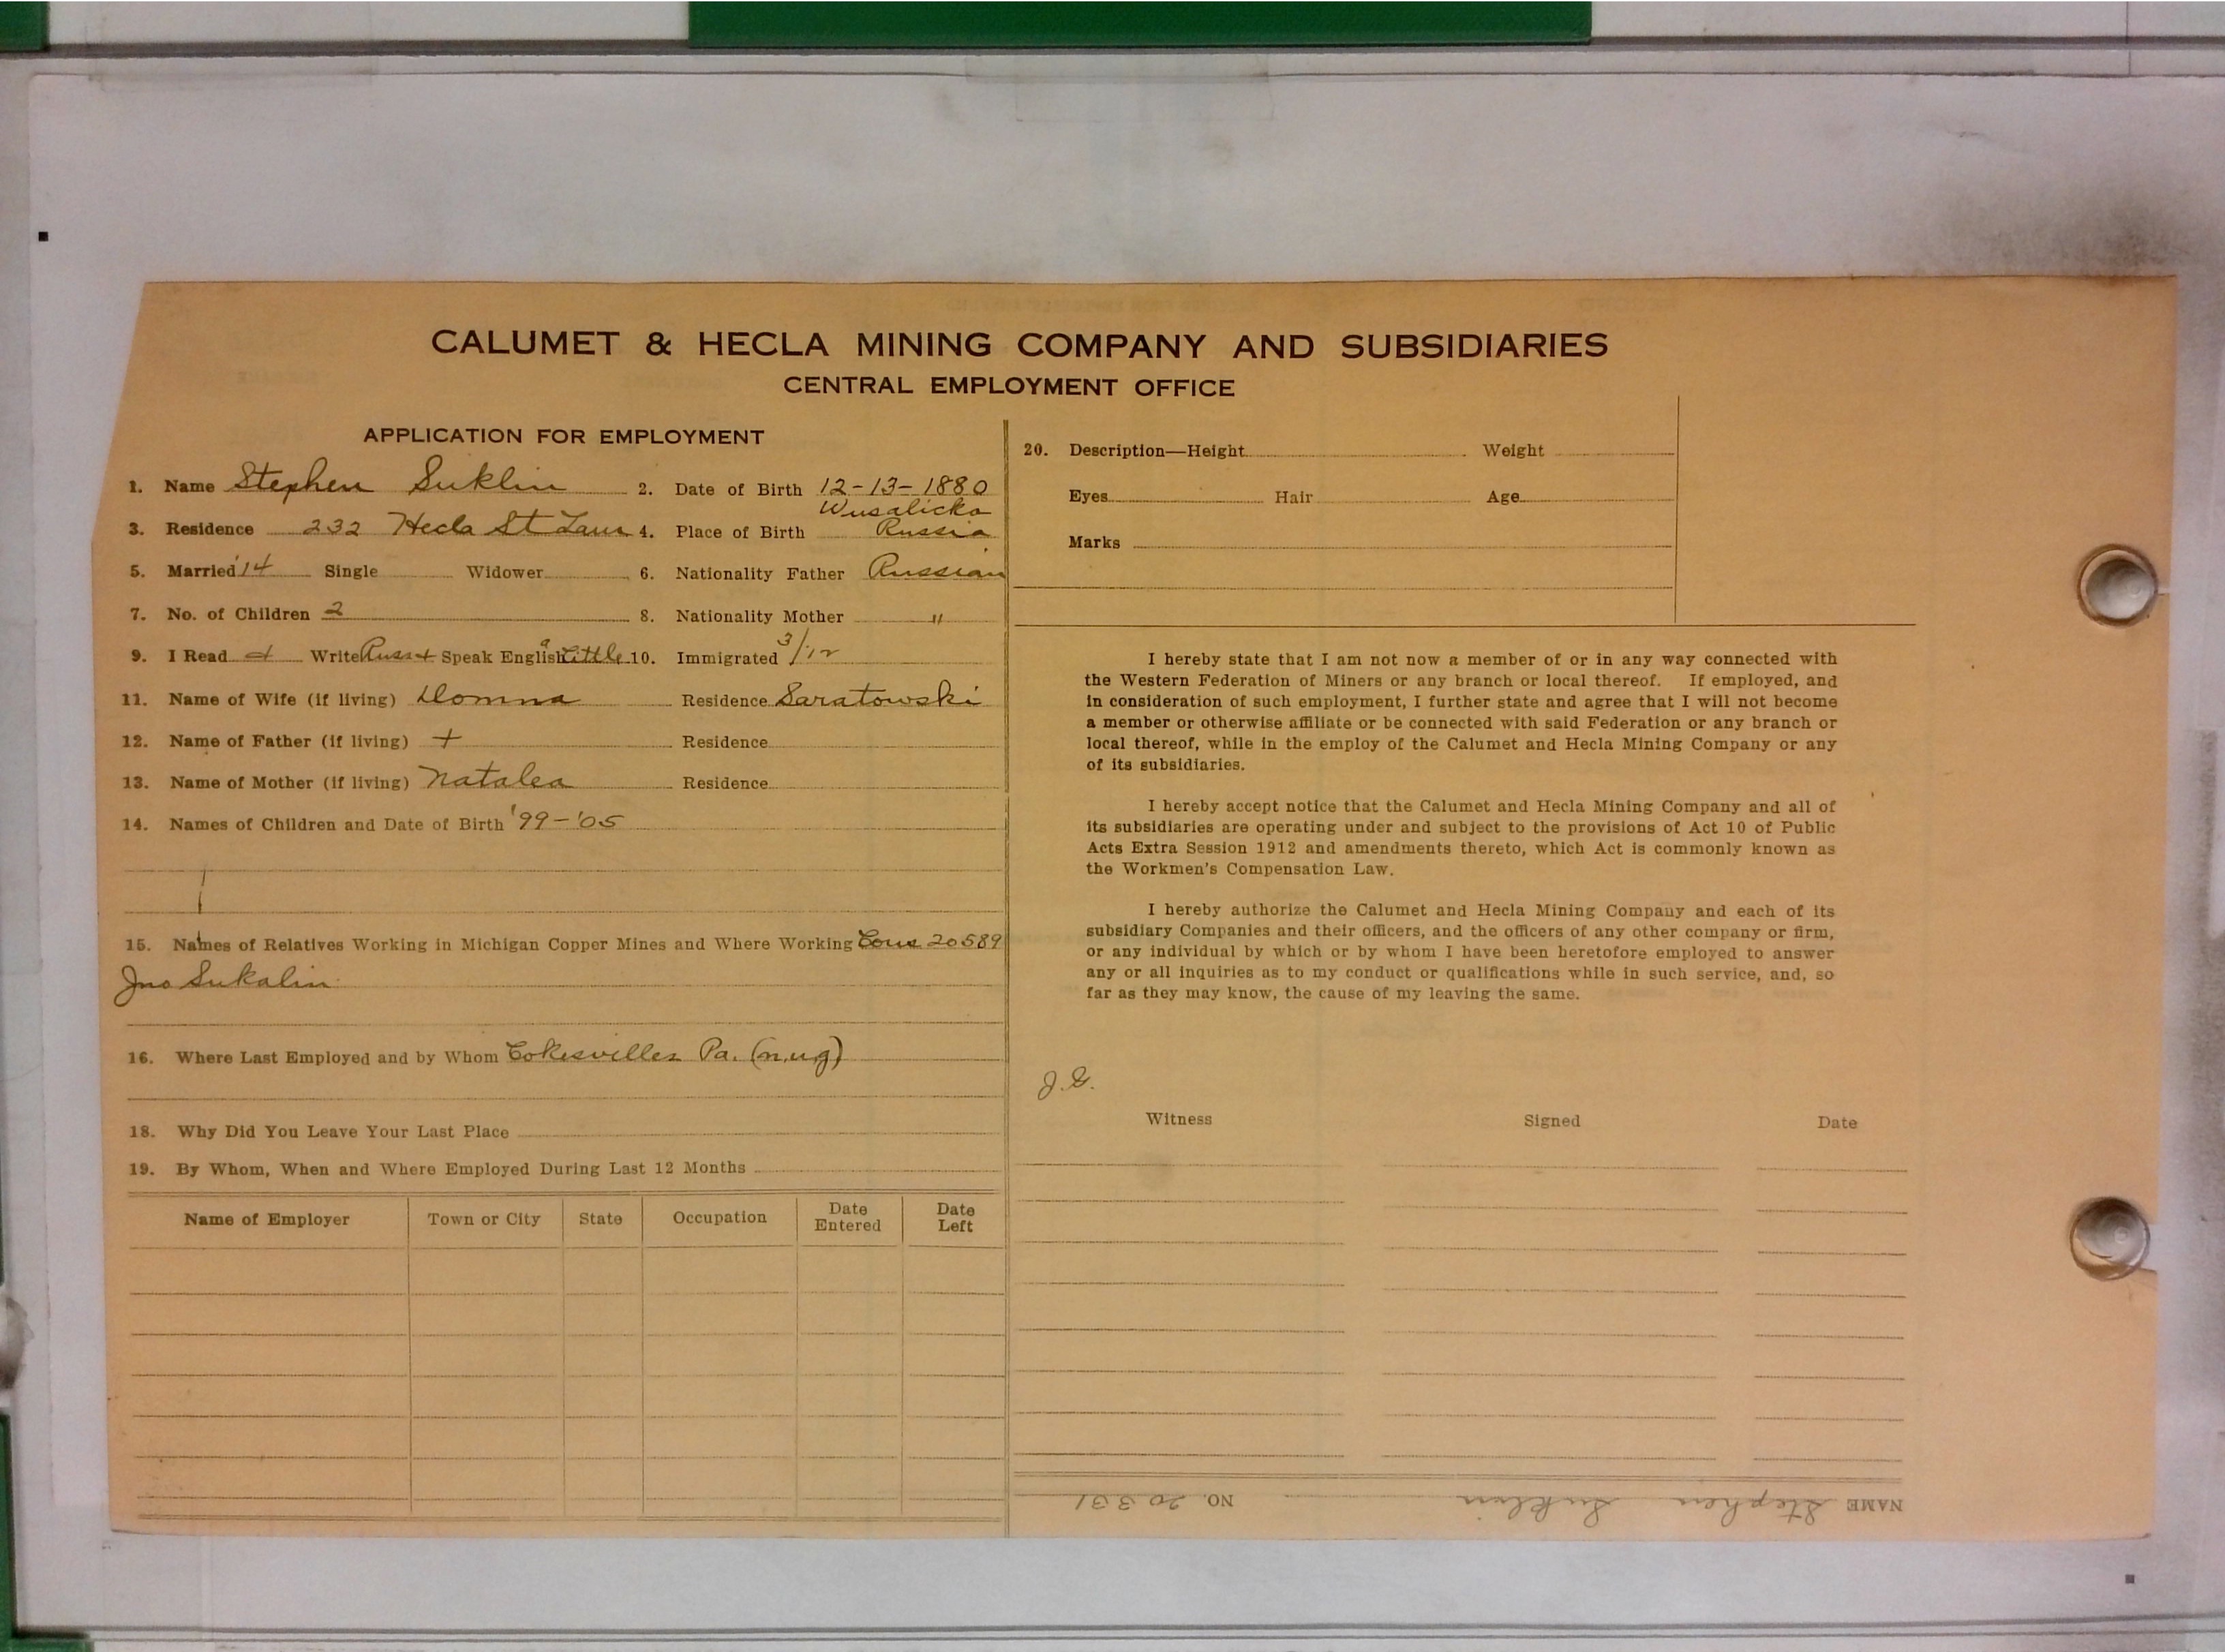 CALUMET & HECLA MINING COMPANY AND SUBSIDIARIES
CENTRAL EMPLOYMENT OFFICE
APPLICATION FOR EMPLOYMENT
1. Name Stephen Suklin 2. Date of Birth 12-13-1880
3. Residence 232 Hecla St Laur 4. Place of Birth Wusalicko Russia
5. Married 14 Single Widower 6. Nationality Father Russian
7. No. of Children 2 8. Nationality Mother "
9. I Read + Write Russ + Speak English a Little 10. Immigrated 3/12
11. Name of Wife (if living) Domna Residence Saratowski
12. Name of Father (if living) + Residence
13. Name of Mother (if living) Natalea Residence
14. Names of Children and Date of Birth '99-'05
15. Names of Relatives Working in Michigan Copper Mines and Where Working Cous 20589
Jno Sukalin
16. Where Last Employed and by Whom Cokesville Pa. (n.ug)
18. Why Did You Leave Your Last Place
19. By Whom, When and Where Employed During Last 12 Months
Name of Employer Town or City State Occupation Date Entered Date Left
20. Description—Height Weight
Eyes Hair Age
Marks
I hereby state that I am not now a member of or in any way connected with
the Western Federation of Miners or any branch or local thereof. If employed, and
in consideration of such employment, I further state and agree that I will not become
a member or otherwise affiliate or be connected with said Federation or any branch or
local thereof, while in the employ of the Calumet and Hecla Mining Company or any
of its subsidiaries.
I hereby accept notice that the Calumet and Hecla Mining Company and all of
its subsidiaries are operating under and subject to the provisions of Act 10 of Public
Acts Extra Session 1912 and amendments thereto, which Act is commonly known as
the Workmen's Compensation Law.
I hereby authorize the Calumet and Hecla Mining Company and each of its
subsidiary Companies and their officers, and the officers of any other company or firm,
or any individual by which or by whom I have been heretofore employed to answer
any or all inquiries as to my conduct or qualifications while in such service, and, so
far as they may know, the cause of my leaving the same.
J.G.
Witness Signed Date
NAME Stephen Suklin NO. 20331